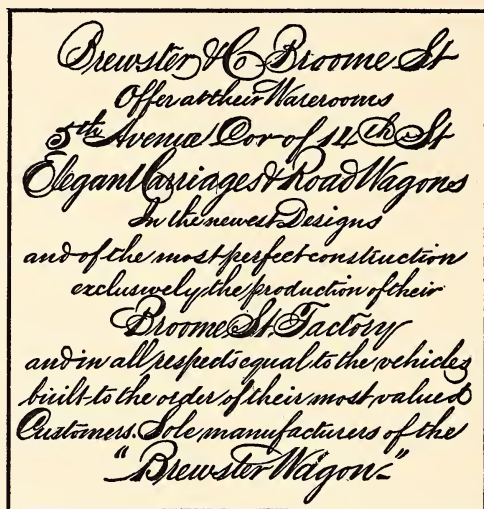 Brewster & Co Broome St
Offer at their Warerooms
5th Avenue Cor of 14th St
Elegant Carriages & Road Wagons
In the newest Designs
and of the most perfect construction
exclusively the production of their
Broome St Factory
and in all respects equal to the vehicles
built to the order of their most valued
Customers. Sole manufacturers of the
"Brewster Wagon"